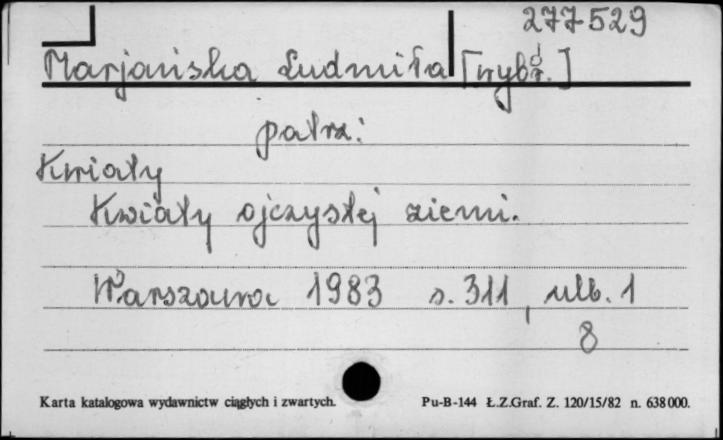 277529
Marjańska Ludmiła [wybr.]
patrz:
Kwiaty
Kwiaty ojczystej ziemi.
Warszawa 1983 s. 311, nlb. 1
8
Karta katalogowa wydawnictw ciągłych i zwartych. Pu-B-144 Ł.Z.Graf. Z. 120/15/82 n. 638000.